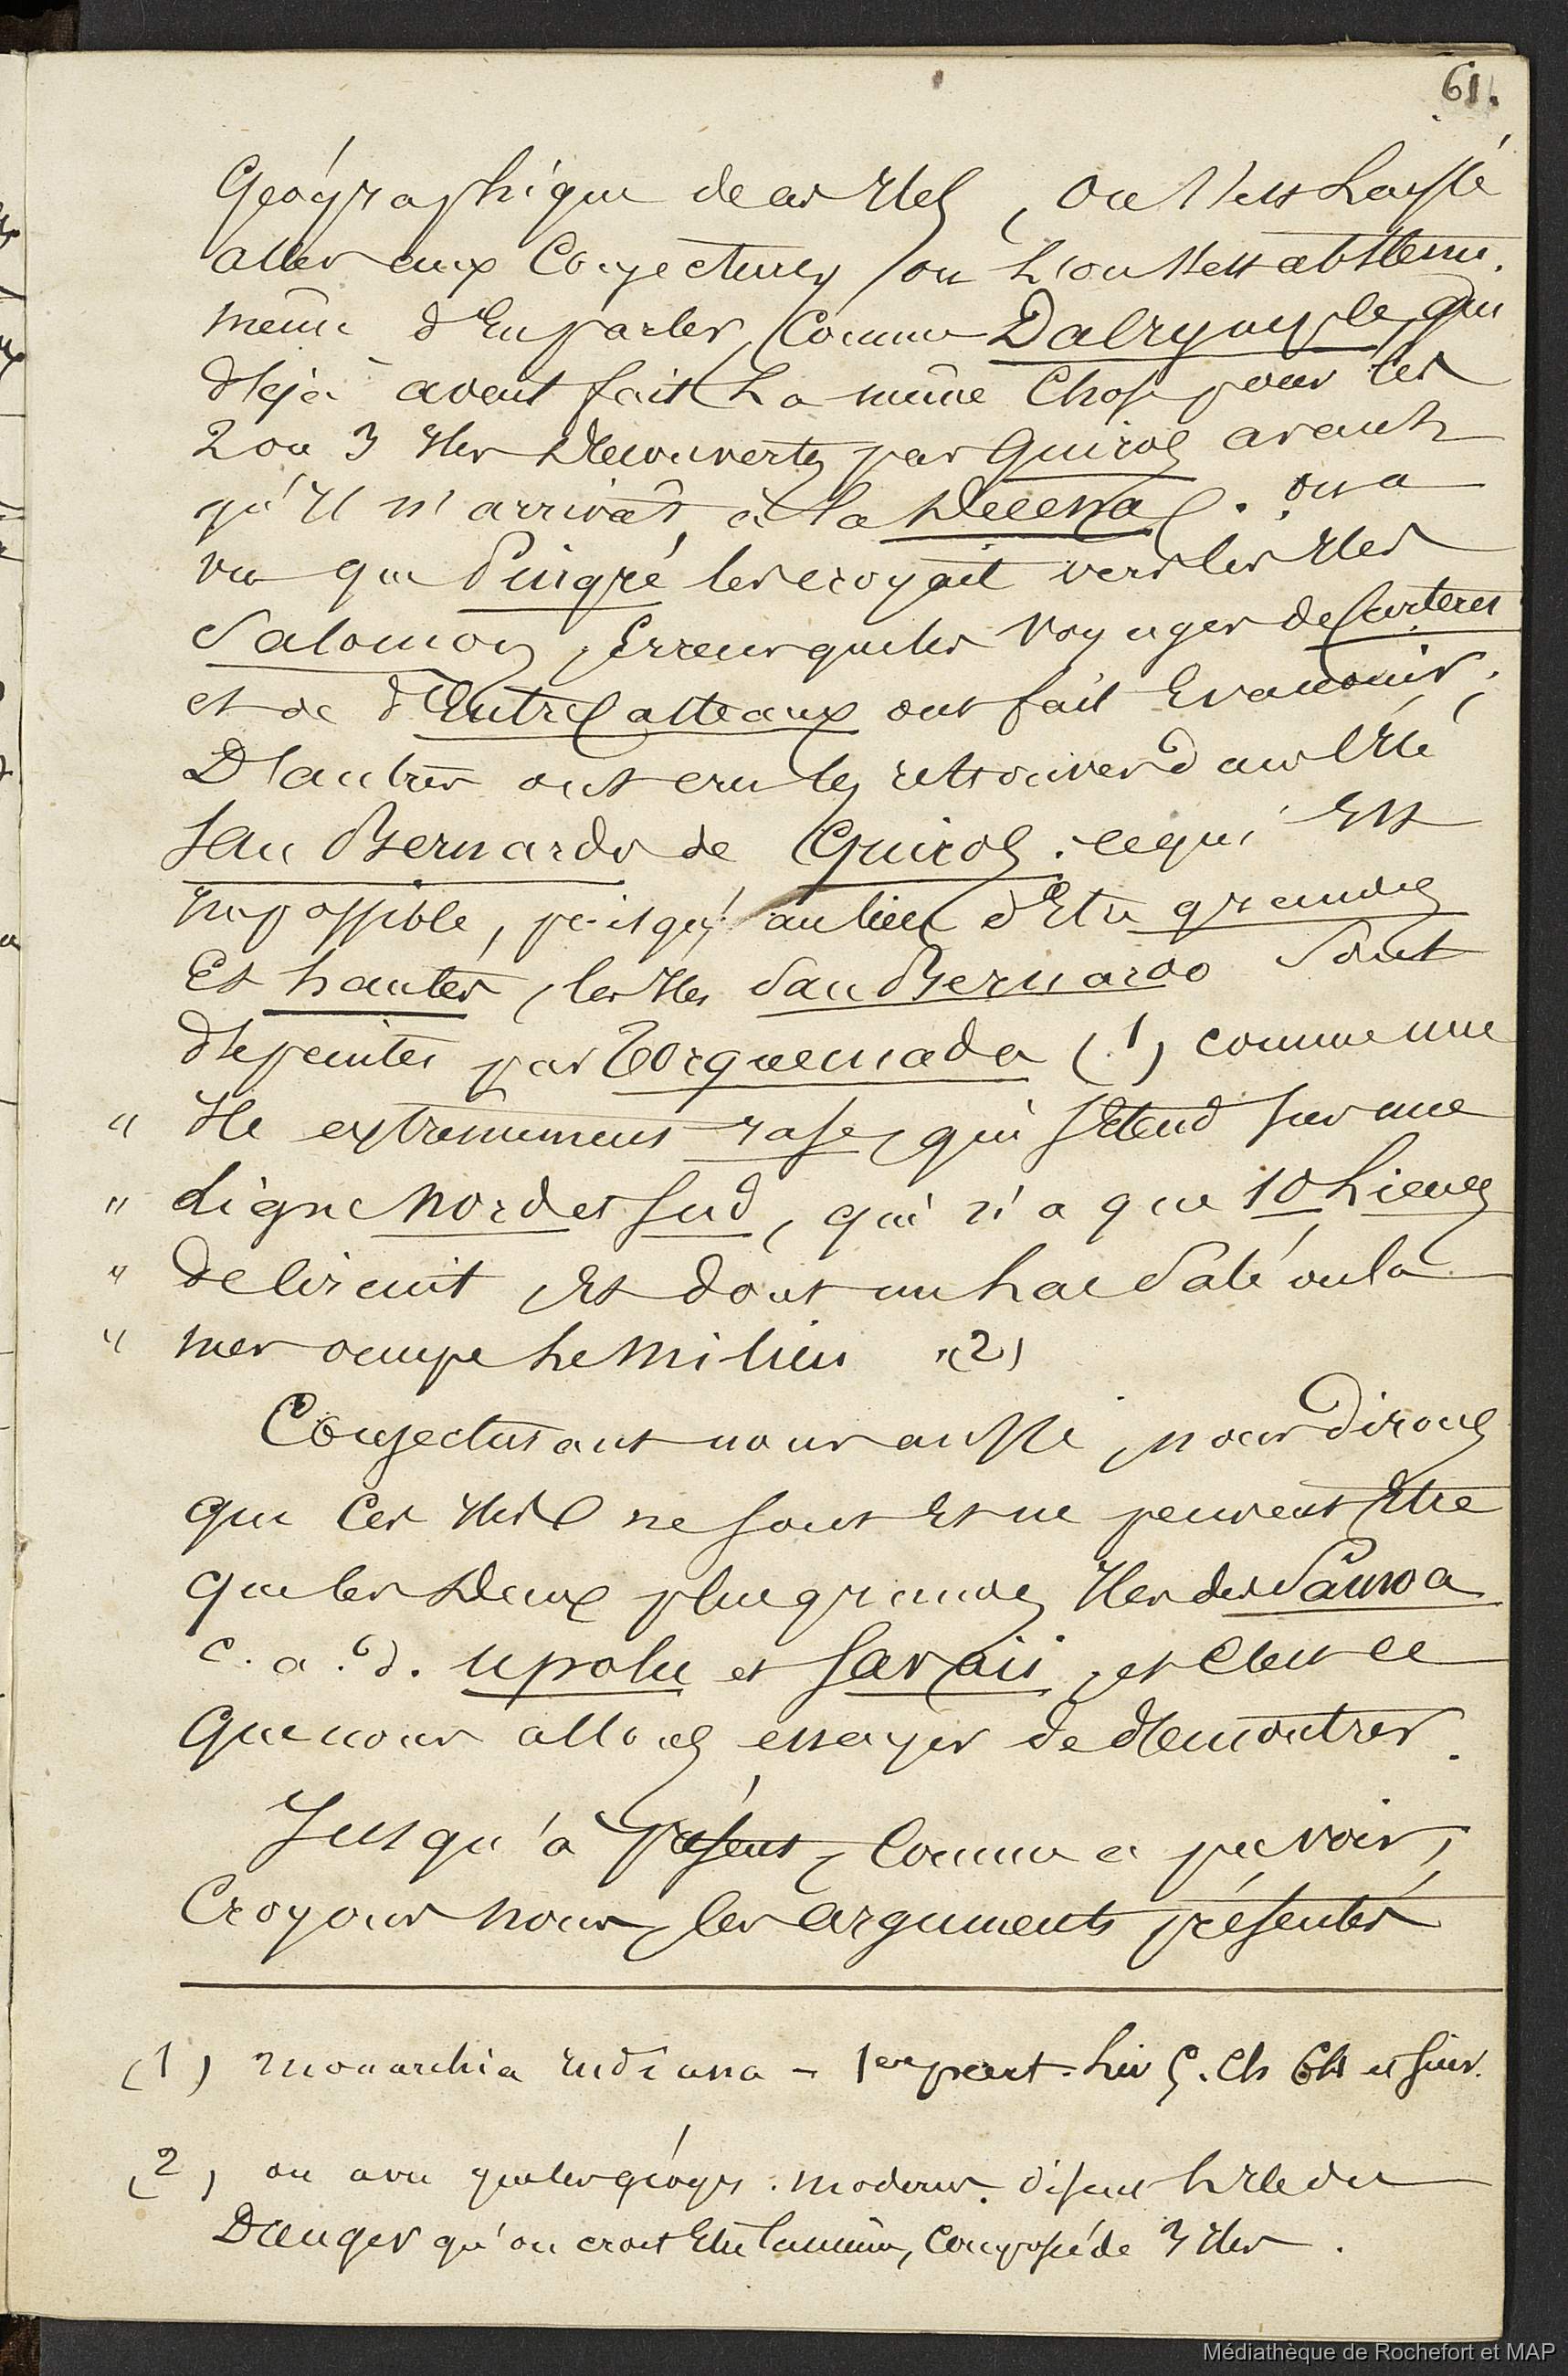 61.
Géographique de ces Iles, on s'est laissé
aller aux conjectures, ou l'on s'est abstenu
même d'en parler, comme Dalrymple, qui
déjà avait fait la même chose pour les
2 ou 3 Iles découvertes par Quiros avant
qu'il n'arrivât à la Decena. on a
vu que Pingré les croyait vers les Iles
Salomon, Erreur que les voyages de Carteret
et de d'EntreCasteaux ont fait Evanouir;
D'autres ont cru les retrouver dans l'Ile
San Bernardo de Quiros. ce qui Est
impossible, puisqu' au lieu d'Etre grandes
Et hautes, les Iles San Bernardo sont
dépeintes par Torquemada (1) comme une
" Ile extrêmement rase, qui s'étend sur une
" Ligne Nord et Sud, qui n'a que 10 Lieues
" de circuit, Et dont un Lac Salé ou la
" mer occupe le milieu "(2)
Conjecturant nous aussi, nous dirons
que ces Iles ne sont Et ne peuvent Etre
que les deux plus grandes Iles des Samoa
c. a. d. Upolu et Savaii, et c'est ce
que nous allons essayer de démontrer.
Jusqu'à présent, comme a pu voir,
Croyons nous, les arguments présentés
(1) Monarchia Indiana - 1ere part. Liv 5. Ch 64 et suiv.
(2) on a vu que les géogr. modernes. disent l'Ile du
Danger qu'on croit Etre la même, composée de 3 Iles.
Médiathèque de Rochefort et MAP